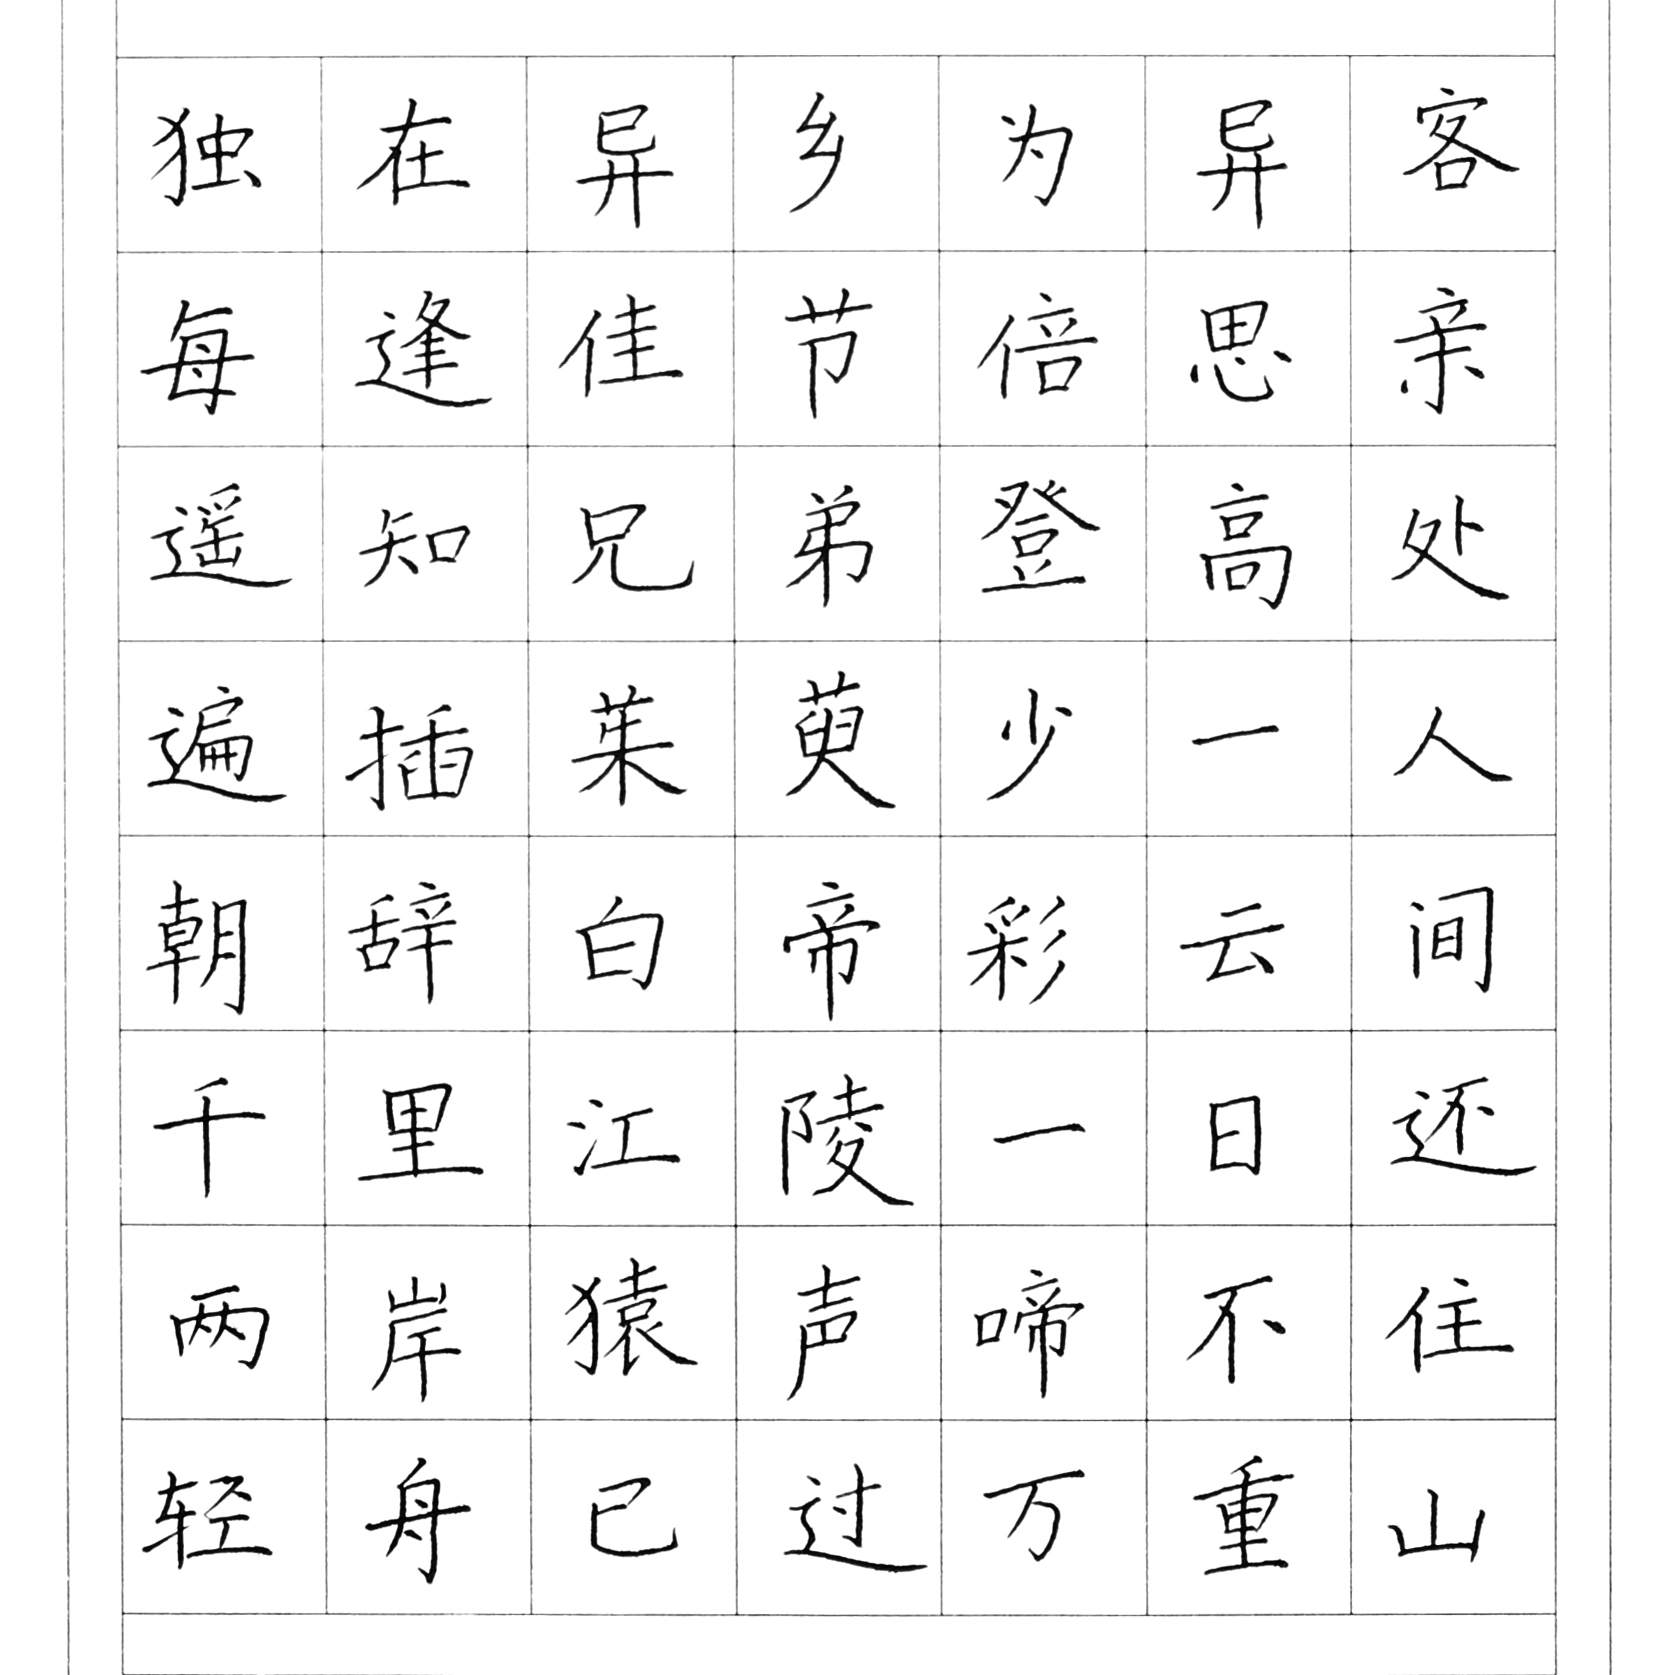 独在异乡为异客
每逢佳节倍思亲
遥知兄弟登高处
遍插茱萸少一人
朝辞白帝彩云间
千里江陵一日还
两岸猿声啼不住
轻舟已过万重山